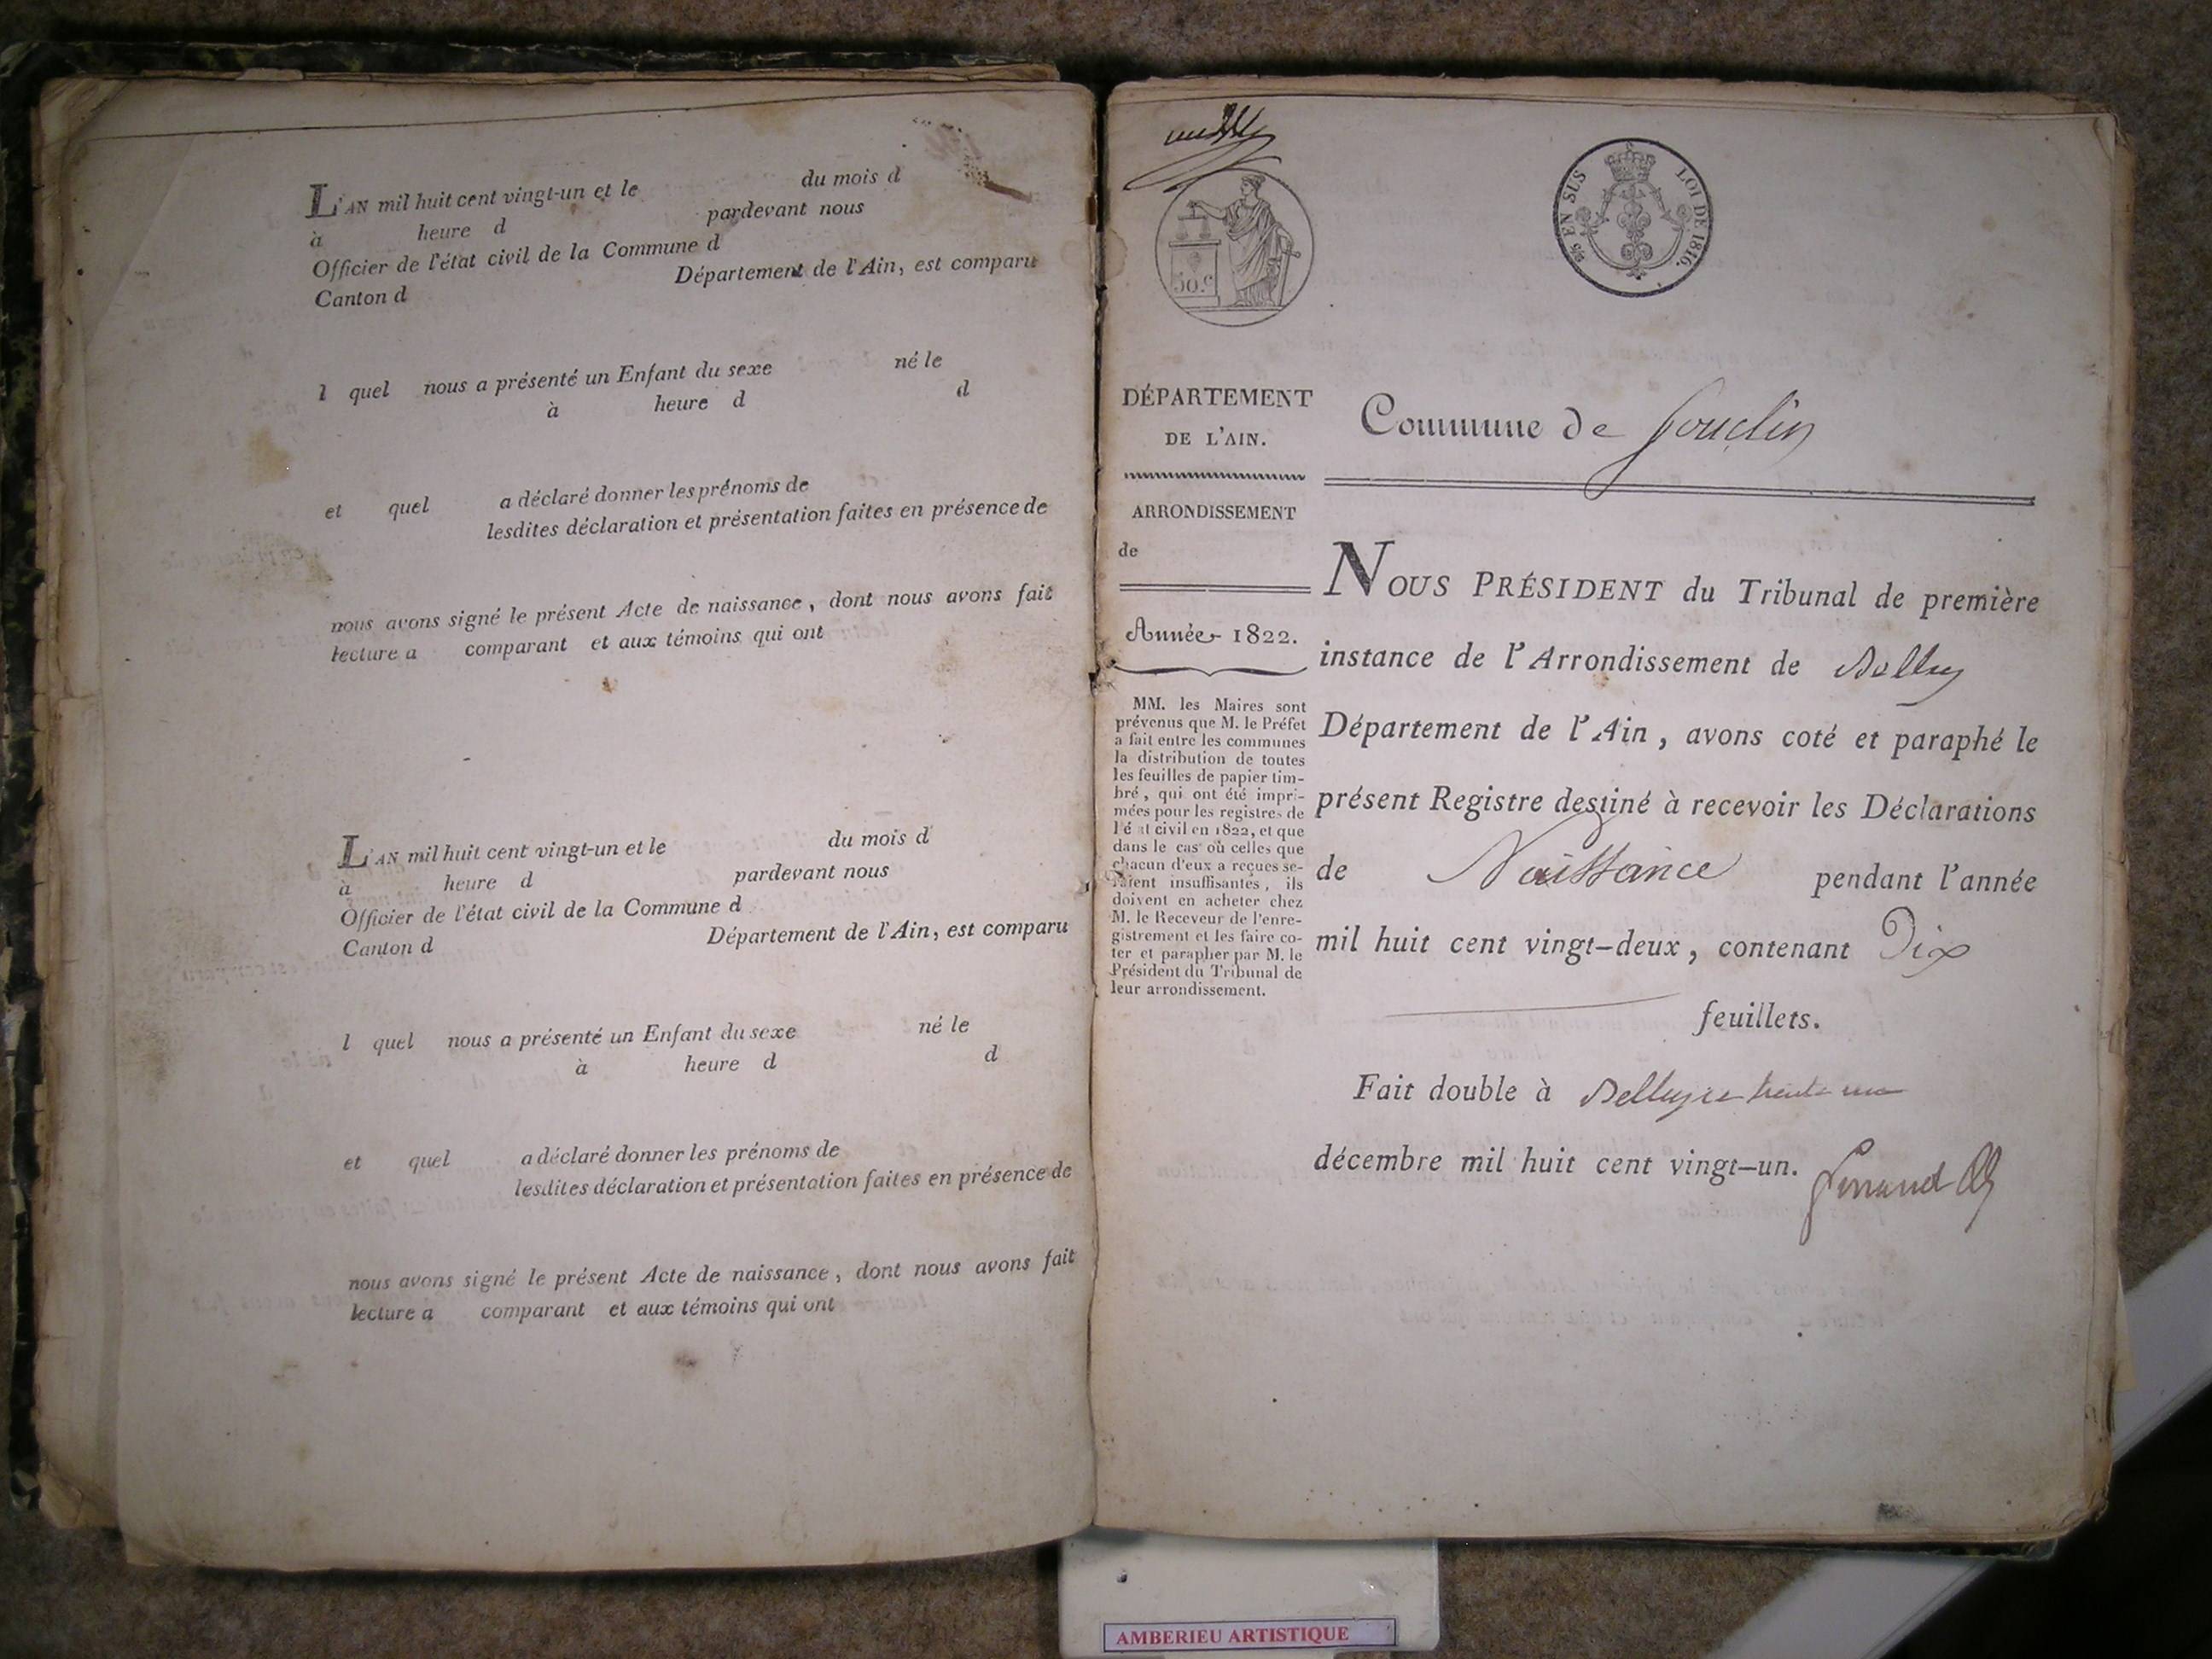 L'AN mil huit cent vingt-un et le du mois d
à heure d pardevant nous
Officier de l'état civil de la Commune d
Canton d Département de l'Ain, est comparu
l quel nous a présenté un Enfant du sexe né le
à heure d d
et quel a déclaré donner les prénoms de
lesdites déclaration et présentation faites en présence de
nous avons signé le présent Acte de naissance, dont nous avons fait
lecture a comparant et aux témoins qui ont
L'AN mil huit cent vingt-un et le du mois d
à heure d pardevant nous
Officier de l'état civil de la Commune d
Canton d Département de l'Ain, est comparu
l quel nous a présenté un Enfant du sexe né le
à heure d d
et quel a déclaré donner les prénoms de
lesdites déclaration et présentation faites en présence de
nous avons signé le présent Acte de naissance, dont nous avons fait
lecture a comparant et aux témoins qui ont
50.c
EN SUS LOI DE 1816.
DÉPARTEMENT
DE L'AIN.
ARRONDISSEMENT
de
Année 1822.
MM. les Maires sont
prévenus que M. le Préfet
a fait entre les communes
la distribution de toutes
les feuilles de papier tim-
bré, qui ont été impri-
mées pour les registres de
l'é at civil en 1822, et que
dans le cas où celles que
chacun d'eux a reçues se-
raient insuffisantes, ils
doivent en acheter chez
M. le Receveur de l'enre-
gistrement et les faire co-
ter et parapher par M. le
Président du Tribunal de
leur arrondissement.
Commune de Souclin
NOUS PRÉSIDENT du Tribunal de première
instance de l'Arrondissement de Belley
Département de l'Ain, avons coté et paraphé le
présent Registre destiné à recevoir les Déclarations
de Naissance pendant l'année
mil huit cent vingt-deux, contenant Dix
feuillets.
Fait double à Belley ce trente un
décembre mil huit cent vingt-un.
AMBERIEU ARTISTIQUE